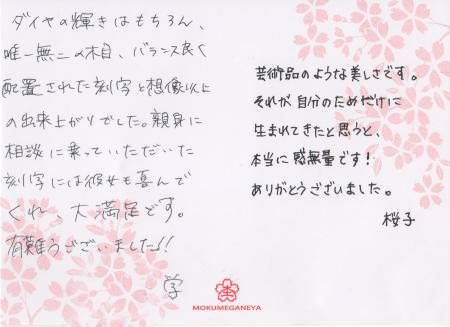 ダイヤの輝きはもちろん、
唯一無二の木目、バランス良く
配置された刻字と想像以上
の出来上がりでした。親身に
相談に乗っていただいた
刻字には彼女も喜んで
くれ、大満足です。
有難うございました!!
学
芸術品のような美しさです。
それが自分のためだけに
生まれてきたと思うと、
本当に感無量です!
ありがとうございました。
桜子
MOKUMEGANEYA